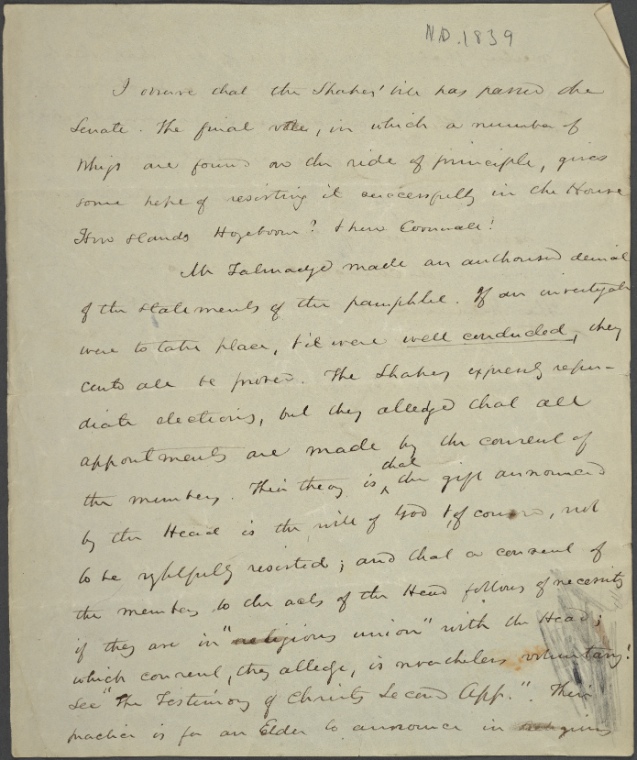 N.D. 1839
I observe that the Shakers' bill has passed the
Senate. The final vote, in which a number of
Whigs are found on the side of principle, gives
some hope of resisting it successfully in the House
How stands Hogeboom? & how Cornwall!
Mr Talmadge made an authorised denial
of the statements of the pamphlet. If an investigation
were to take place, & it were well conducted, they
could all be proved. The Shakers expressly repu-
diate elections, but they alledge that all
appointments are made by the consent of
the members. Their theory is that the gift announced
by the Head is the will of God &, of course, not
to be rightfully resisted; and that a consent of
the members to the acts of the Head follows of necessity
if they are in "religious union" with the Head;
which consent, they alledge, is nevertheless voluntary!
See "The Testimony of Christs Second App." Their
practice is for an Elder to announce in